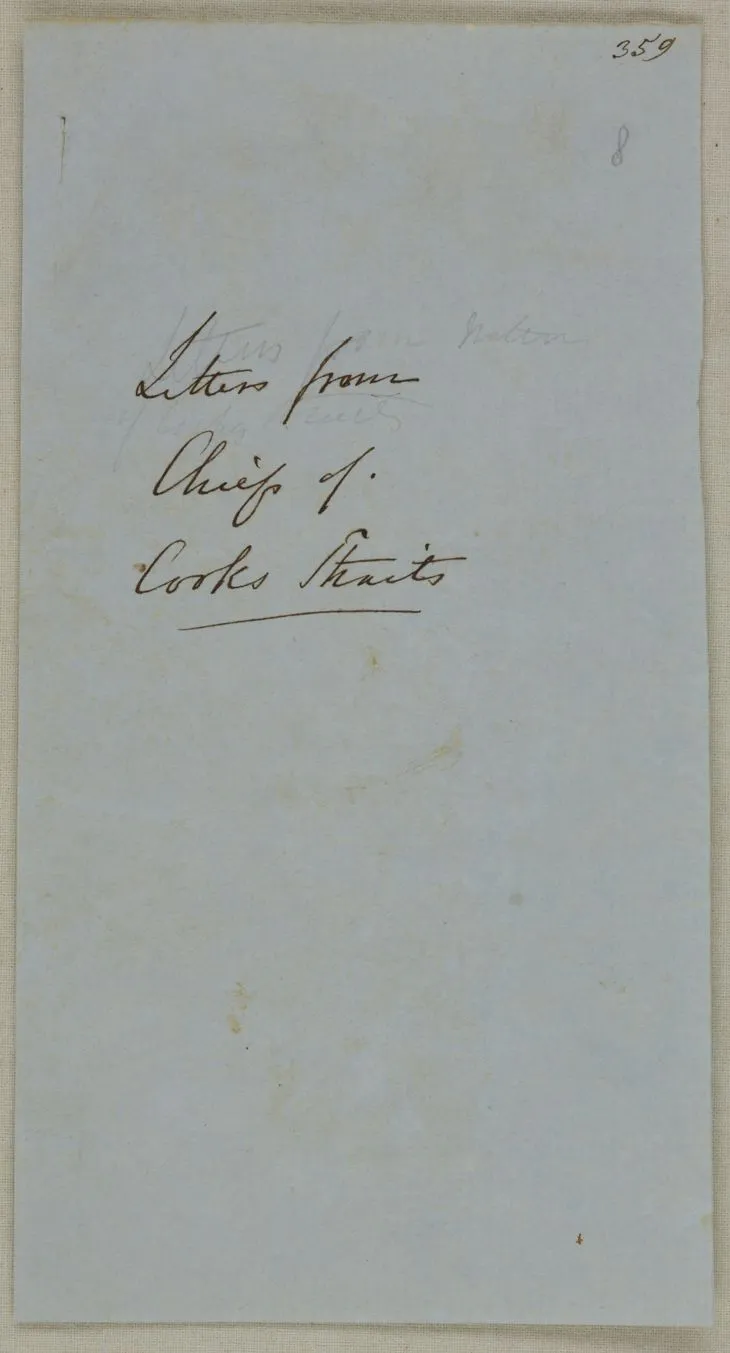 359
8
Letters from
Letters from
Chiefs of.
Cooks Straits